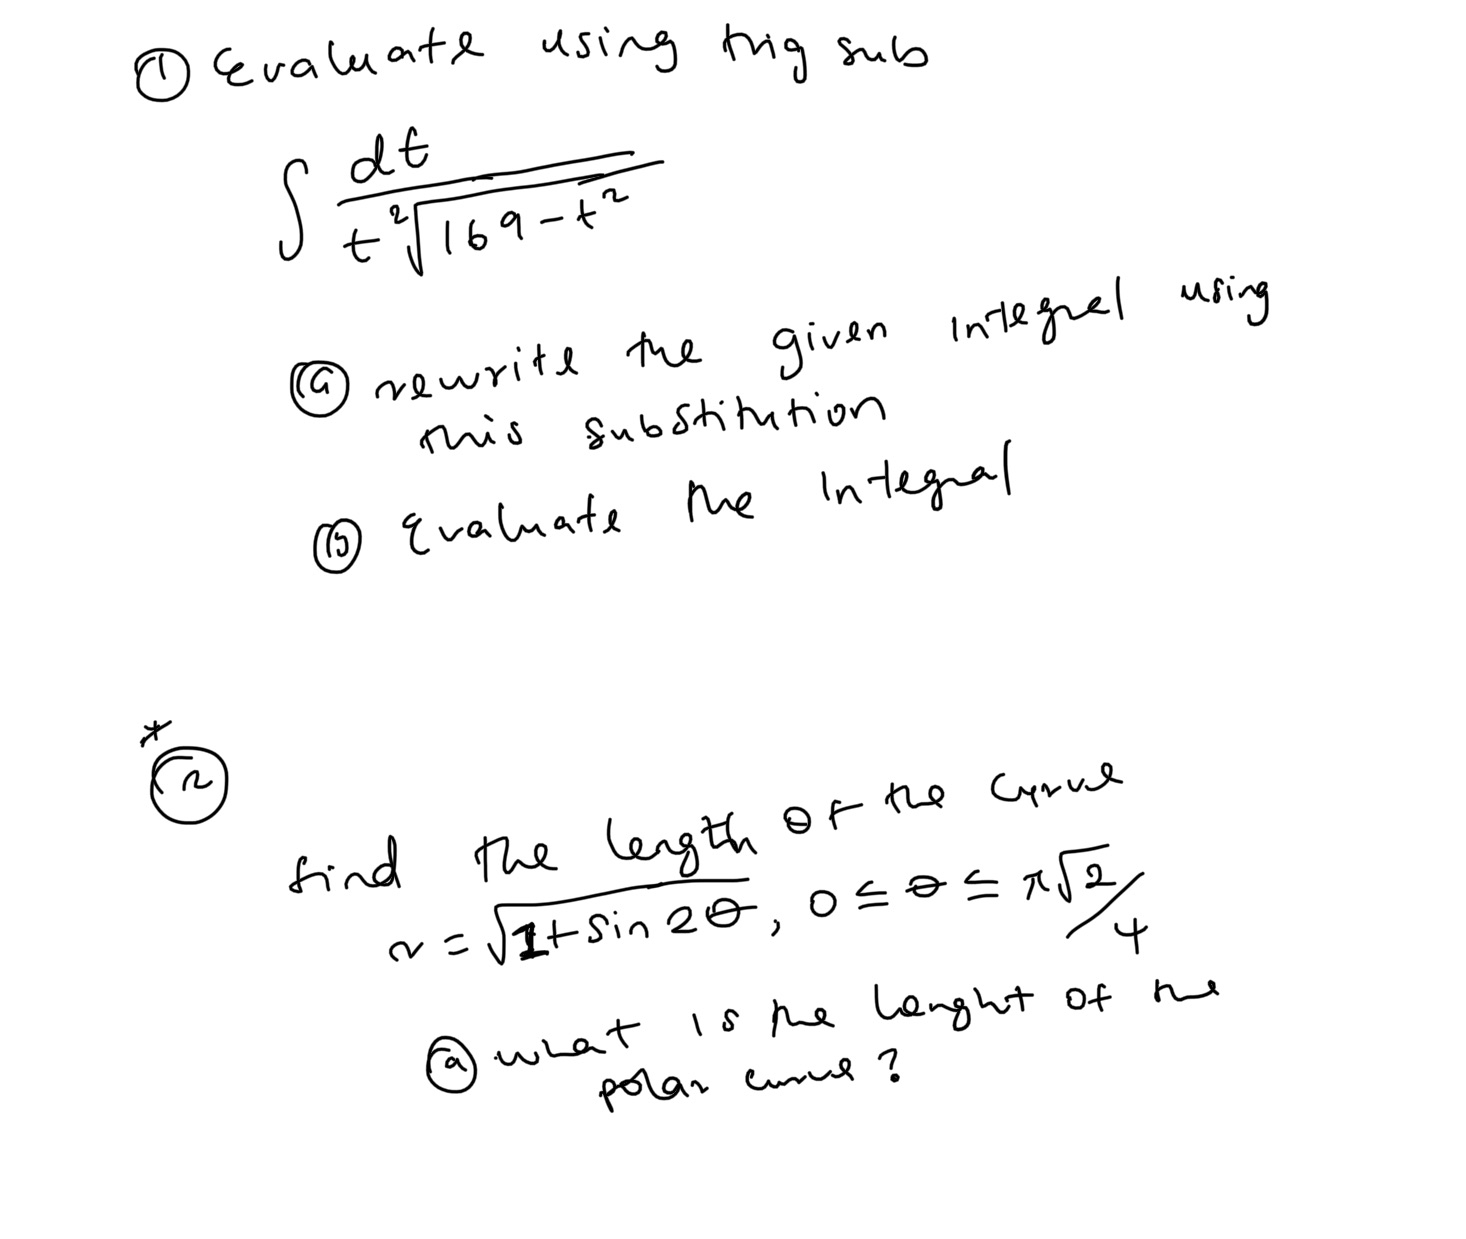 ① Evaluate using trig sub
∫ dt / t²√(169-t²)
ⓐ rewrite the given integral using
this substitution
ⓑ Evaluate the Integral
*
② find the length of the curve
r = √(1+sin 2θ), 0 ≤ θ ≤ π√2/4
ⓐ what is the lenght of the
polar curve?